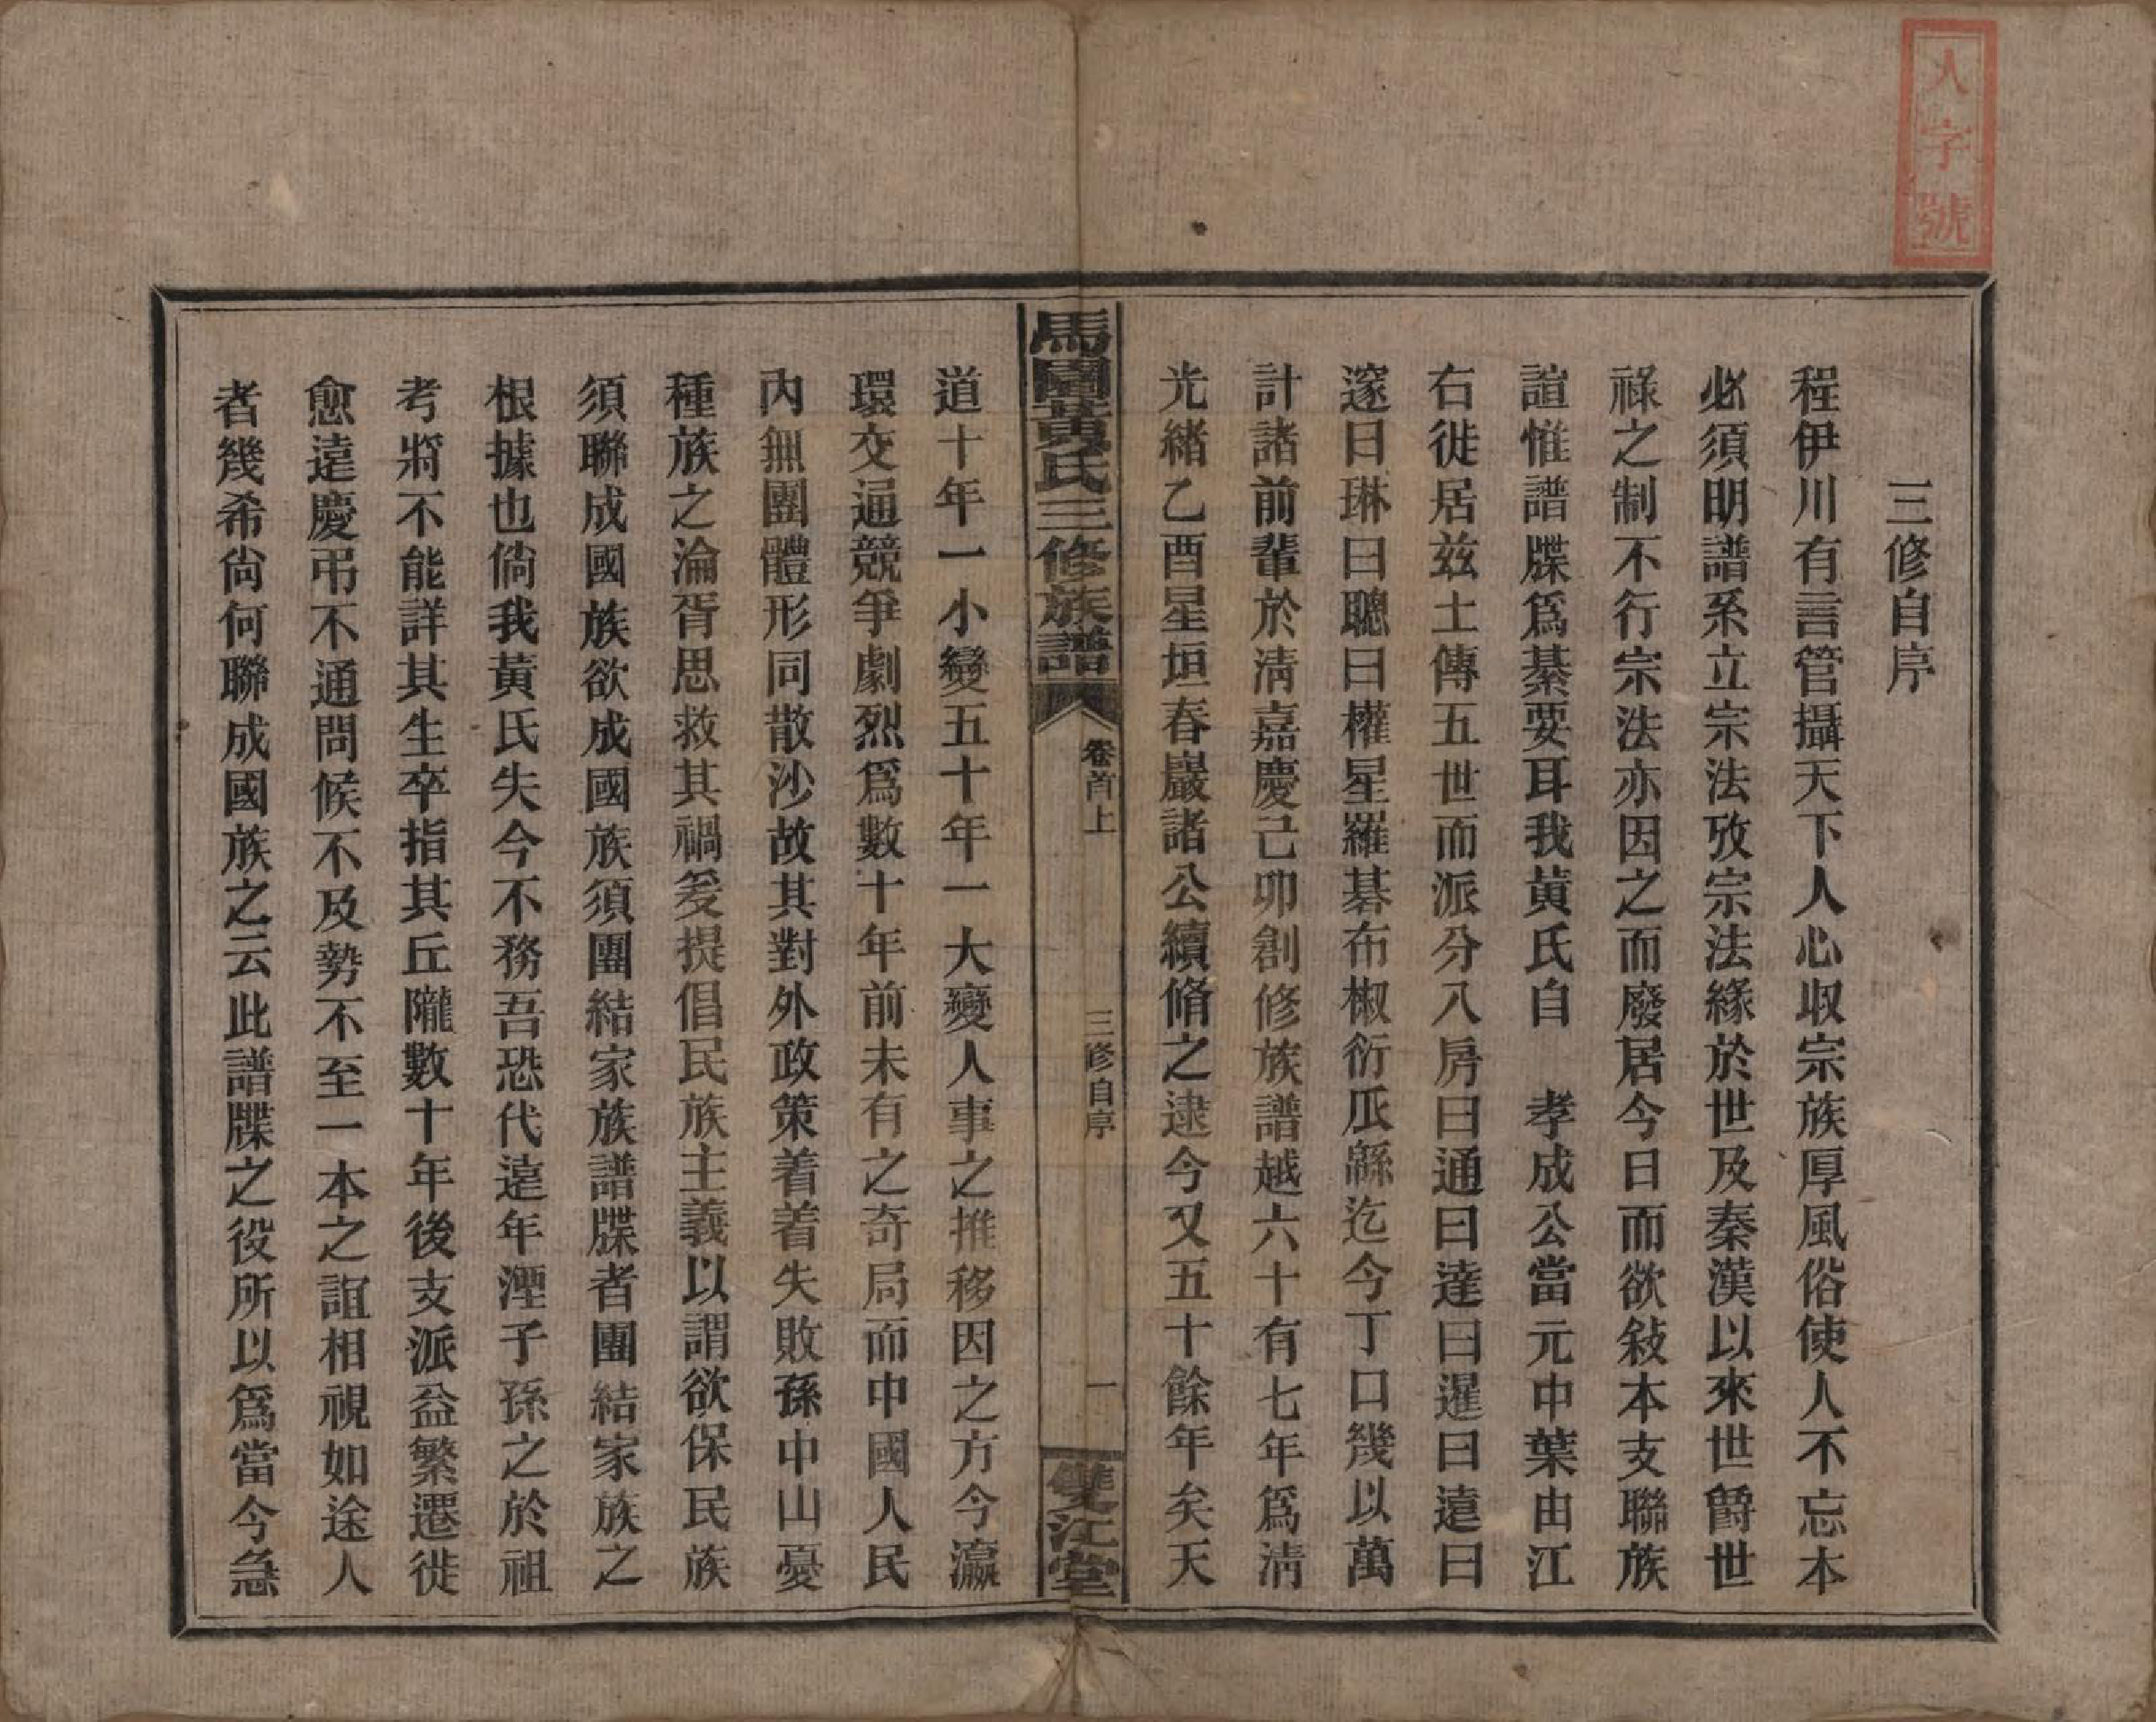 人字號
三修自序
程伊川有言管攝天下人心収宗族厚風俗使人不忘本
必須明譜系立宗法攷宗法緣於世及秦漢以來世爵世
祿之制不行宗法亦因之而廢居今日而欲敍本支聯族
誼惟譜牒爲綦要耳我黃氏自　孝成公當元中葉由江
右徙居茲土傳五世而派分八房曰通曰達曰暹曰遠曰
邃曰琳曰聰曰權星羅碁布椒衍瓜緜迄今丁口幾以萬
計諸前輩於淸嘉慶己卯創修族譜越六十有七年爲淸
光緒乙酉星垣春巖諸公續脩之逮今又五十餘年矣天
馬園黃氏三修族譜
卷首上
三修自序
一
雙江堂
道十年一小變五十年一大變人事之推移因之方今瀛
環交通競爭劇烈爲數十年前未有之奇局而中國人民
內無團體形同散沙故其對外政策着着失敗孫中山憂
種族之淪胥思救其禍爰提倡民族主義以謂欲保民族
須聯成國族欲成國族須團結家族譜牒者團結家族之
根據也倘我黃氏失今不務吾恐代遠年湮子孫之於祖
考將不能詳其生卒指其丘隴數十年後支派益繁遷徙
愈遠慶弔不通問候不及勢不至一本之誼相視如途人
者幾希尙何聯成國族之云此譜牒之役所以爲當今急